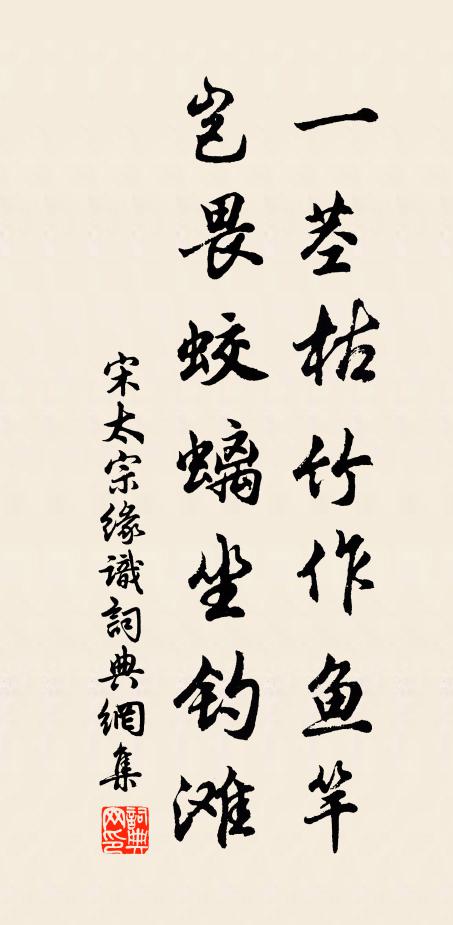 一茎枯竹作鱼竿
岂畏蛟螭坐钓滩
宋太宗缘識詞典網集
詞典網印